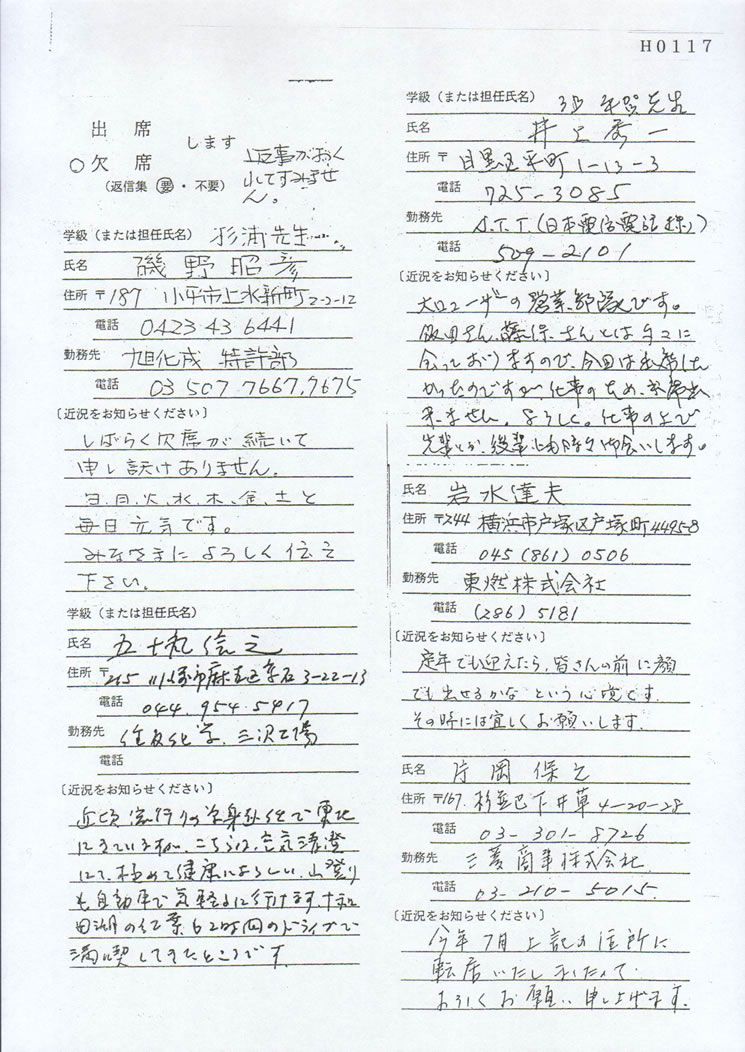 H0117
出席
○欠席
します
(返信集 要・不要)
返事がおく
れてすみませ
ん。
学級（または担任氏名） 杉浦先生……
氏名 磯野昭彦
住所 〒187 小平市上水新町2-2-12
電話 0423 43 6441
勤務先 旭化成 特許部
電話 03 507 7667, 7675
〔近況をお知らせください〕
しばらく欠席が続いて
申し訳けありません。
日、月、火、水、木、金、土と
毎日元気です。
みなさまによろしく伝え
下さい。
学級（または担任氏名）
氏名 五十嵐信之
住所 〒215 川崎市麻生区 3-22-13
電話 044. 954. 5417
勤務先 住友化学、三沢工場
電話
〔近況をお知らせください〕
近頃流行りの単身赴任で東北
にきていますが、こちらは、空気清澄
にて、極めて健康によろしい。山登り
も自動車で気軽に行けます。十和
田湖の紅葉も2時間のドライブで
満喫してきたところです。
学級（または担任氏名） 3B 先生
氏名 井上秀一
住所 〒 目黒区平町1-13-3
電話 725-3085
勤務先 N.T.T.(日本電信電話(株))
電話 509-2101
〔近況をお知らせください〕
大口ユーザーの営業部隊です。
飯田さん、さんとは時々に
会っておりますので、今回は出席した
かったのですが、仕事のため、出席出
来ません。よろしく。仕事の上で
先輩とか、後輩とも時々お会いします。
氏名 岩水達夫
住所 〒244 横浜市戸塚区戸塚町4495-8
電話 045 (861) 0506
勤務先 東燃株式会社
電話 (286) 5181
〔近況をお知らせください〕
定年でも迎えたら、皆さんの前に顔
でも出せるかなという心境です。
その時には宜しくお願いします。
氏名 片岡保之
住所 〒167. 杉並区下井草4-20-28
電話 03-301-8726
勤務先 三菱商事株式会社
電話 03-210-5015.
〔近況をお知らせください〕
今年7月上記の住所に
転居いたしましたので
よろしくお願い申し上げます。